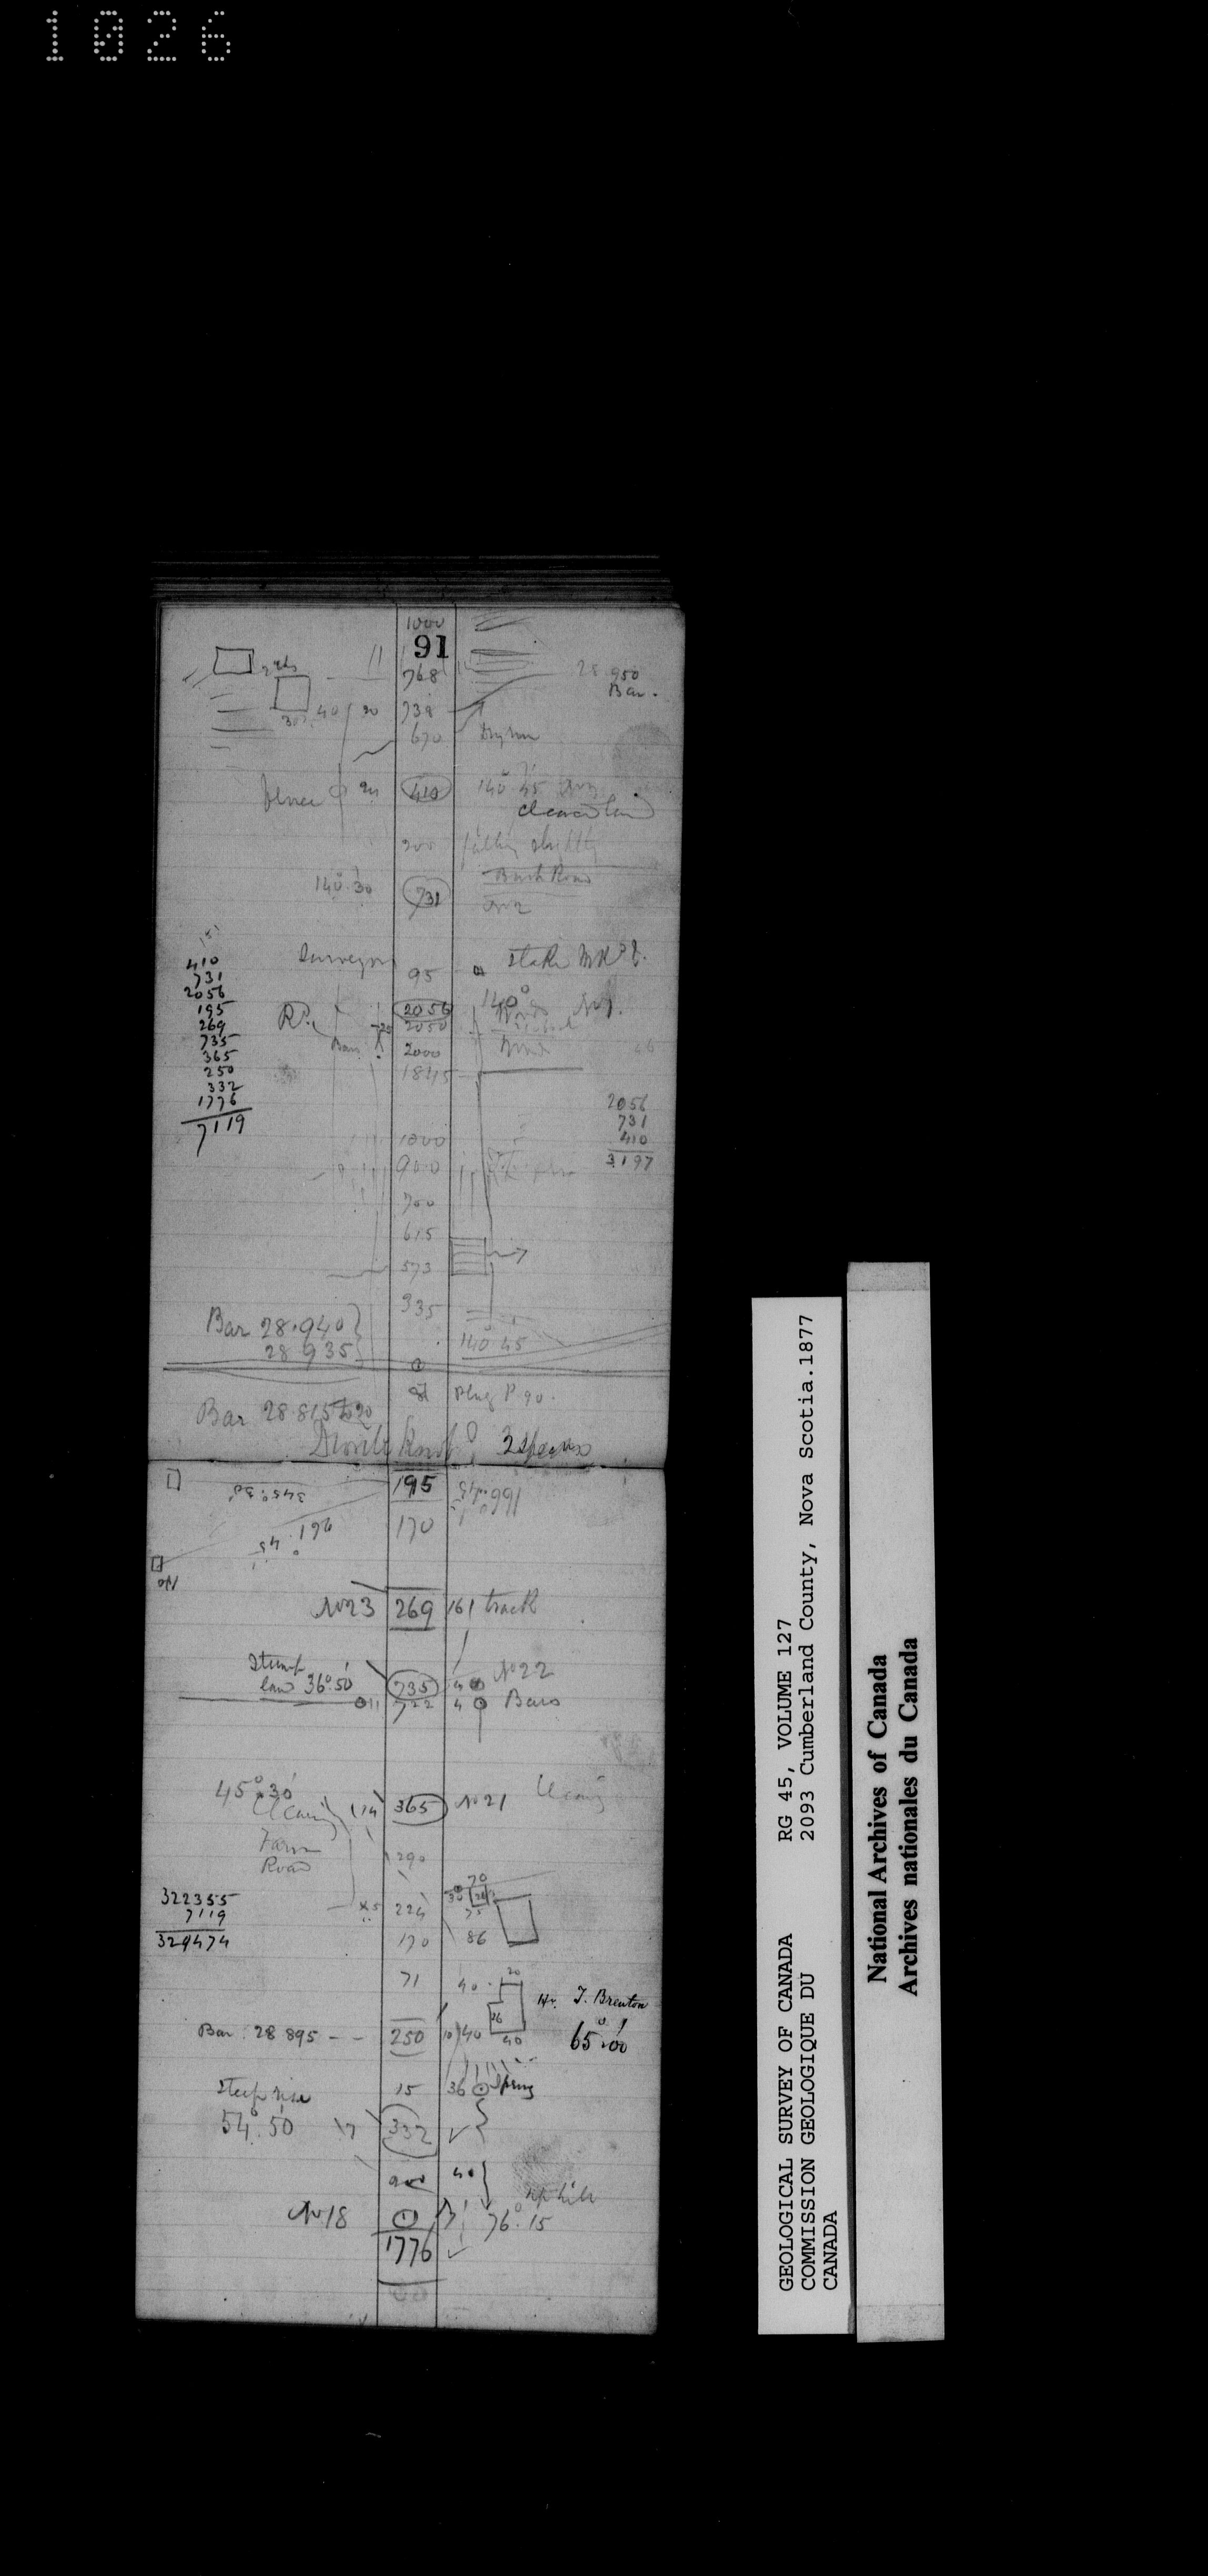 1026
1000
91
768
28.950
Bar.
30 40 20 738
670
410 140° 45'
Cleared land
200 falling slightly
140° 30' 731 Bush Road
Surveyor 95 stake
410
731
2056
195
269
735
365
250
332
1776
7119
2056 140°
2050
Bars 2000
1845
2056
731
410
3197
1000
900
700
615
573
335
Bar 28.940
28 935
140° 45'
Plug P 90.
Bar 28.815
195
345° 30'
166° 45'
170
No 23 269 161 track
Stump
land 36° 50' 735 4 No 22
11 722 4 Bars
45° 30' 14 365 No 21 Clearing
Clearing
Farm
Road
290
322355
7119
329474
224
70
170 86
71 40 20
Ho. T. Brenton
36
Bar. 28 895 - - 250 10 40 40 65° 00'
15 36 Spring
Steep rise
54° 50' 332
200 40
up hill
No 18 76° 15
1776
GEOLOGICAL SURVEY OF CANADA RG 45, VOLUME 127
COMMISSION GEOLOGIQUE DU 2093 Cumberland County, Nova Scotia.1877
CANADA
National Archives of Canada
Archives nationales du Canada